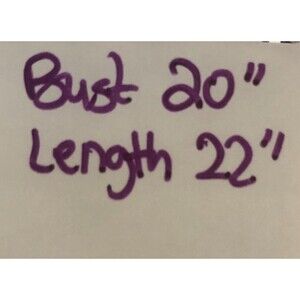 Bust 20"
Length 22"